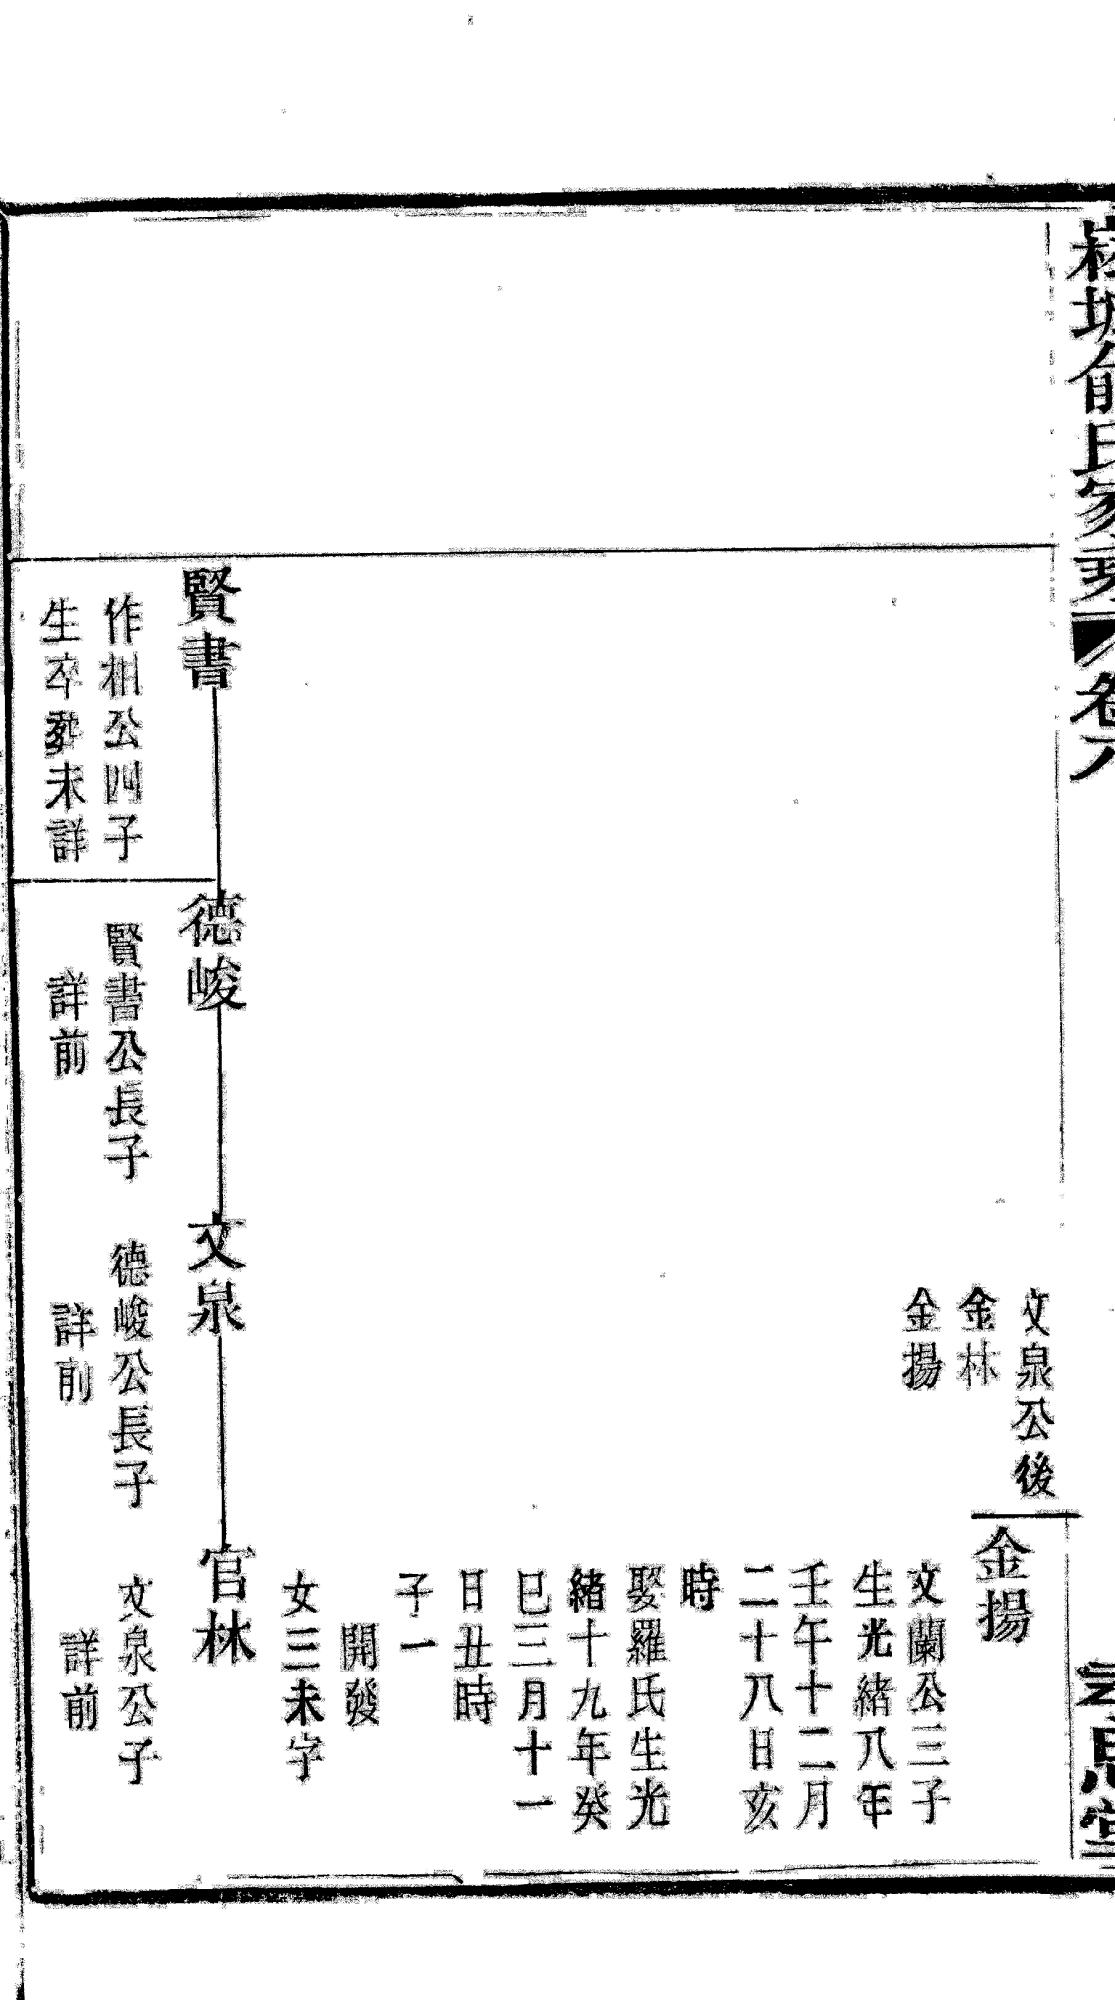 俞氏家乘
卷八
思堂
文泉公後
金林
金揚
金揚
文蘭公三子
生光緒八年
壬午十二月
二十八日亥
時
娶羅氏生光
緒十九年癸
巳三月十一
日丑時
子一
開發
女三未字
賢書
作相公四子
生卒葬未詳
德峻
賢書公長子
詳前
文泉
德峻公長子
詳前
官林
文泉公子
詳前